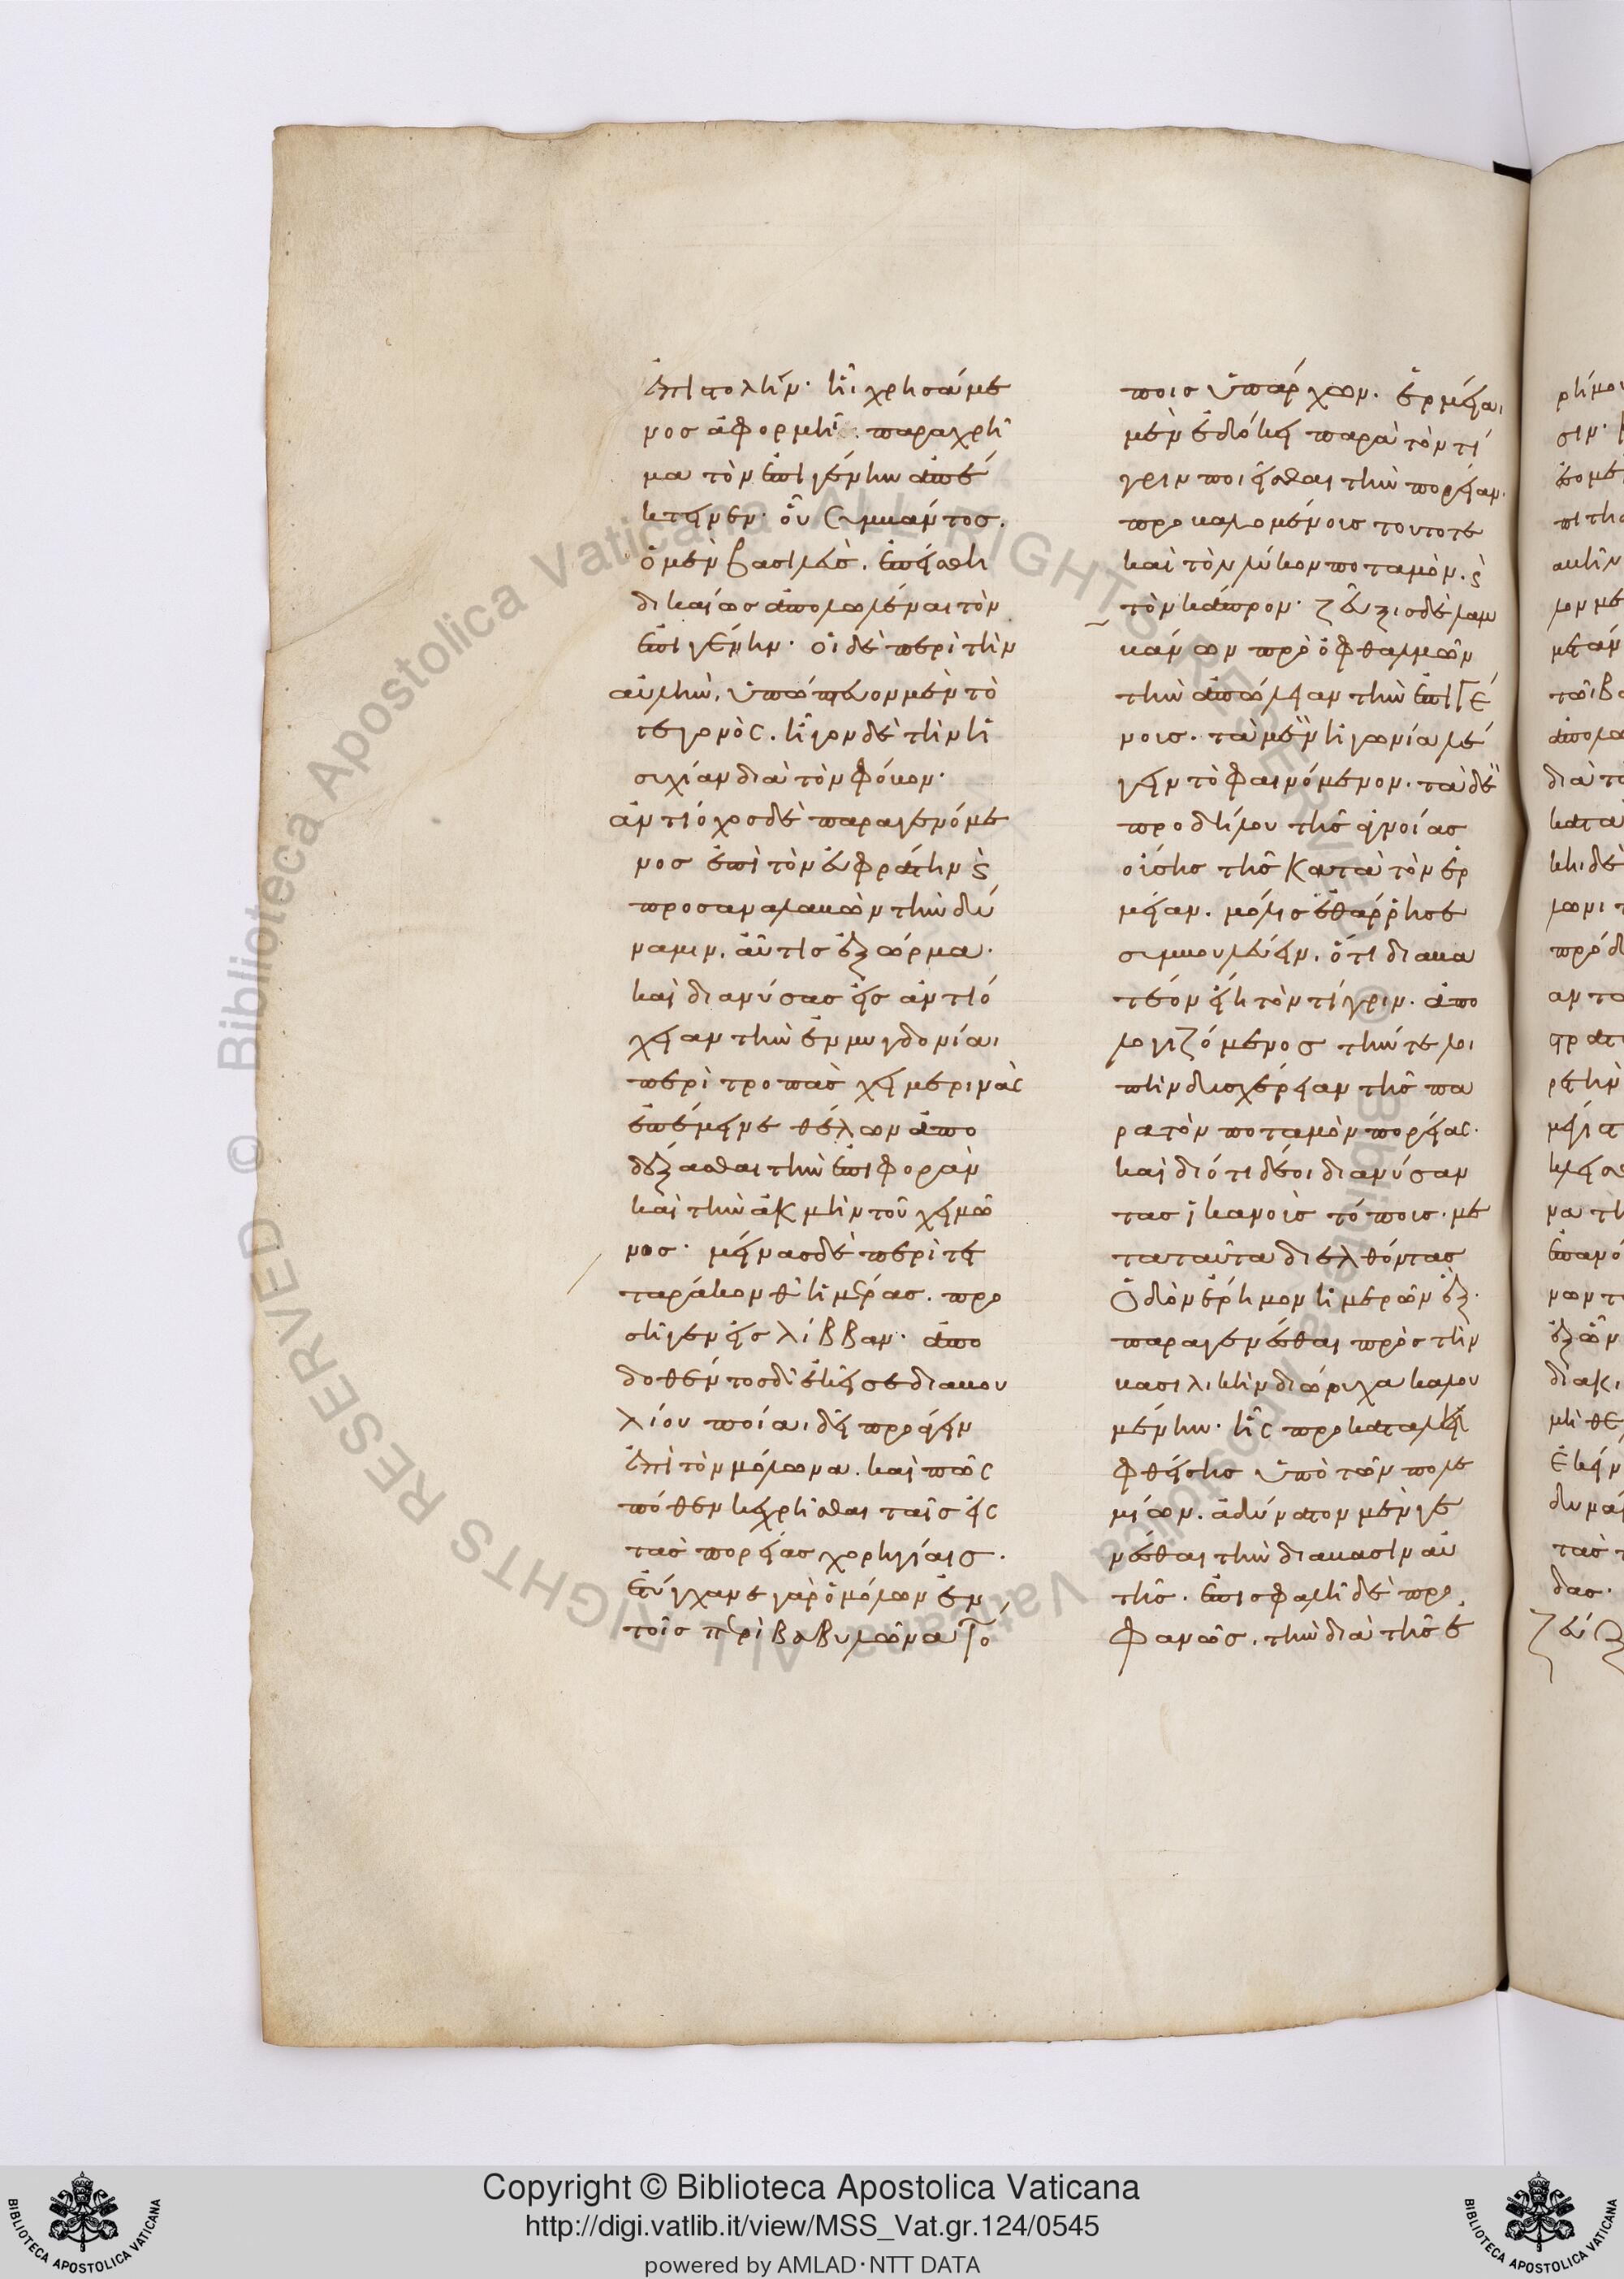 ἐπιστολὴν· ἧι χρησάμε
νος ἀφορμῆι παραχρῆ
μα τὸν ἐπιγένην ἀπέ
κτεινεν· οὗ συμβάντος.
ὁ μὲν βασιλεὺς. ἐπείσθη
δικαίως ἀπολωλέναι τὸν
ἐπιγένην· οἱ δὲ περὶ τὴν
αὐλὴν, ὑπώπτευον μὲν τὸ
γεγονὸς. ἦγον δὲ τὴν ἡ
συχίαν διὰ τὸν φόβον·
ἀντίοχος δὲ παραγενόμε
νος ἐπὶ τὸν εὐφράτην ϗ
προσαναλαβὼν τὴν δύ
ναμιν, αὖτις ἐξώρμα·
καὶ διανύσας εἰς ἀντιό
χειαν τὴν ἐν μυγδονίαι
περὶ τροπὰς χειμερινὰς
ἐπέμεινε θέλων ἀπο
δέξασθαι τὴν ἐπιφορὰν
καὶ τὴν ἀκμὴν τοῦ χειμῶ
νος· μείνας δὲ περὶ τε
ταράκονθ ἡμέρας. προ
σῆγεν εἰς λίββαν· ἀπο
δοθέντος δ' ἐκεῖσε διαβου
λίου ποίαι δεῖ προάγειν
ἐπὶ τὸν μόλωνα. καὶ πῶς
πόθεν κεχρῆσθαι ταῖς εἰς
τὰς πορείας χορηγίαις.
ἐτύγχανε γὰρ ὁ μόλων ἐν
τοῖς περὶ βαβυλῶνα τό
ποις ὑπάρχων. ἑρμείαι
μὲν ἐδόκει παρὰ τὸν τί
γριν ποιεῖσθαι τὴν πορείαν.
προβαλομένοις τοῦτοτε
καὶ τὸν λύκον ποταμὸν. ϗ
τὸν κάπρον· ζεῦξις δὲ λαμ
βάνων πρὸ ὀφθαλμῶν
τὴν ἀπώλειαν τὴν ἐπιγέ
νοις. τὰ μὲν ἠγωνία λέ
γειν τὸ φαινόμενον. τὰ δὲ
προδήλου τῆς ἀγνοίας
οὔσης τῆς κατὰ τὸν ἑρ
μείαν. μόλις ἐθάρρησε
συμβουλεύειν, ὅτι διαβα
τέον εἴη τὸν τίγριν. ἀπο
λογιζόμενος τήν τε λοι
πὴν δυσχέρειαν τῆς πα
ρὰ τὸν ποταμὸν πορείας.
καὶ διότι δέοι διανύσαν
τας ἱκανοὺς τόπους. με
τὰ ταῦτα διελθόντας
ὁδὸν ἔρημον ἡμερῶν ἓξ.
παραγενέσθαι πρὸς τὴν
βασιλικὴν διώρυχα καλου
μένην· ἧς προκαταλη
φθείσης ὑπὸ τῶν πολε
μίων. ἀδύνατον μὲν γε
νέσθαι τὴν διάβασιν αὐ
τῆς. ἐπισφαλῆ δὲ προ
φανῶς, τὴν διὰ τῆς ἐ